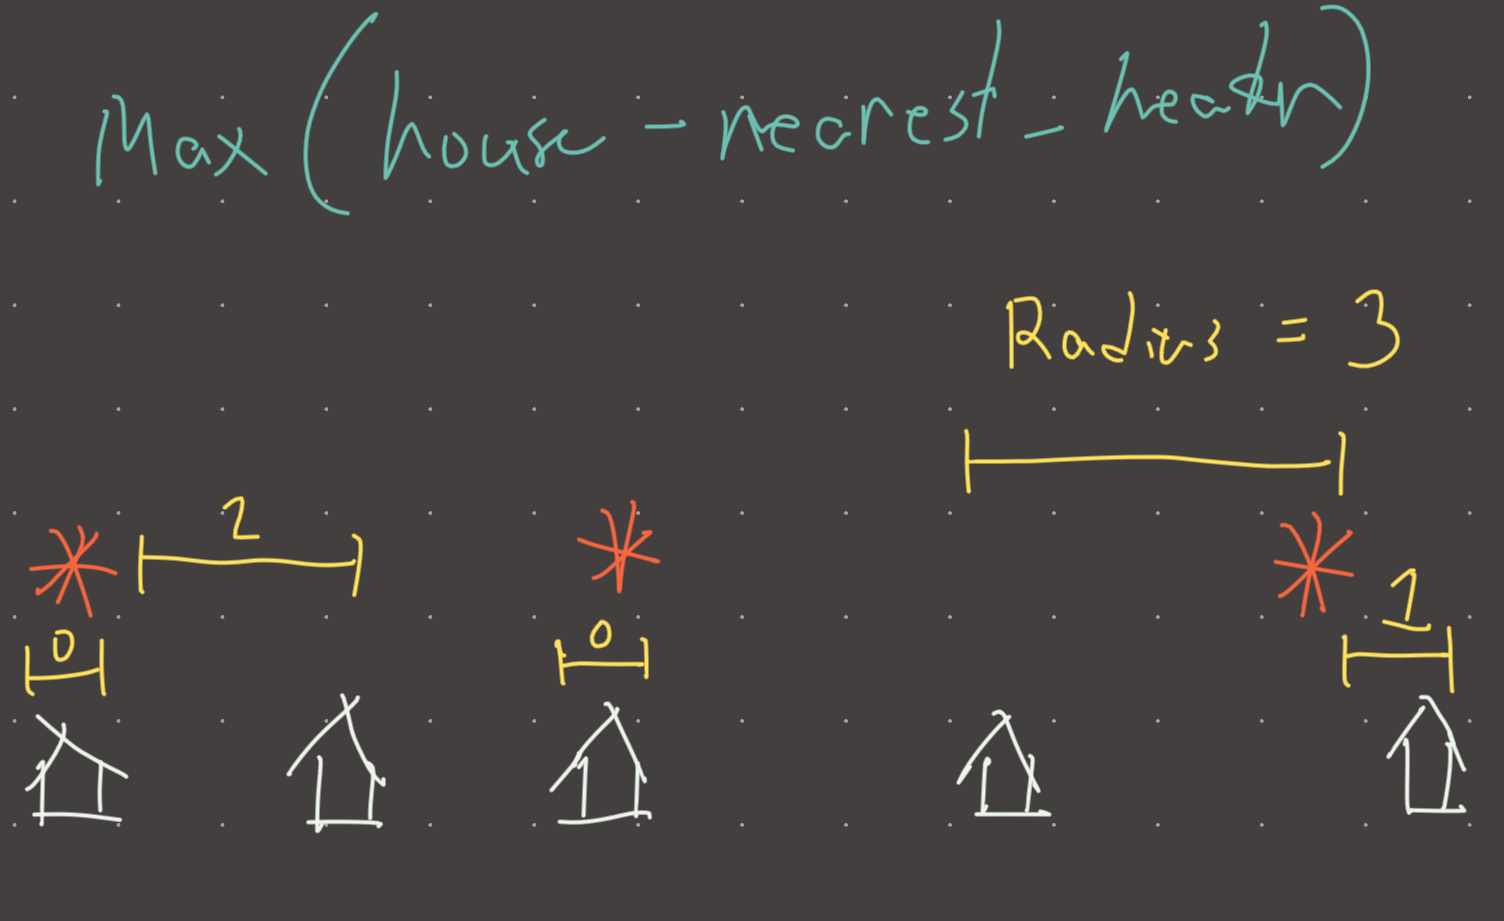 Max (house - nearest - heater)
Radius = 3
2
0 0 1